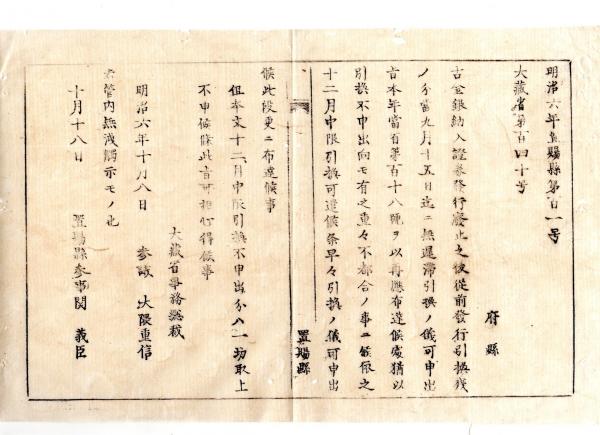 明治六年置賜縣第百一号
大藏省第百四十号
府縣
古金銀納入證券發行廢止之後從前發行引換殘
ノ分當九月十五日迄ニ無遲滯引換ノ儀可申出
旨本年當省第百十八號ヲ以再應布達候處猶以
引換不申出向モ有之重々不都合ノ事ニ候依之
十二月中限引換可遣候条早々引換ノ儀可申出
置賜縣
候此段更ニ布達候事
但本文十二月中限引換不申出分ハ一切取上
不申候條此旨可相心得候事
大藏省事務總裁
明治六年十月八日 参議 大隈重信
右管内無洩觸示モノ也
十月十八日 置賜縣参事関義臣